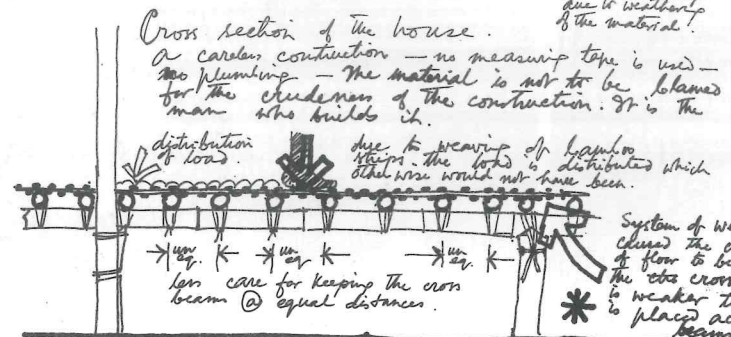 due to weathering
of the material!
Cross section of the house.
a careless contruction — no measuring tape is used —
no plumbing — the material is not to be blamed
for the crudeness of the construction. It is the
man who builds it.
distribution
of load.
due to weaving of bamboo
strips. the load is distributed which
otherwise would not have been.
un
eq.
un
eq.
un
eq.
less care for keeping the cross
beams @ equal distances.
System of we
caused the
of floor to be
the cross
is weaker t
is placed ac
beams